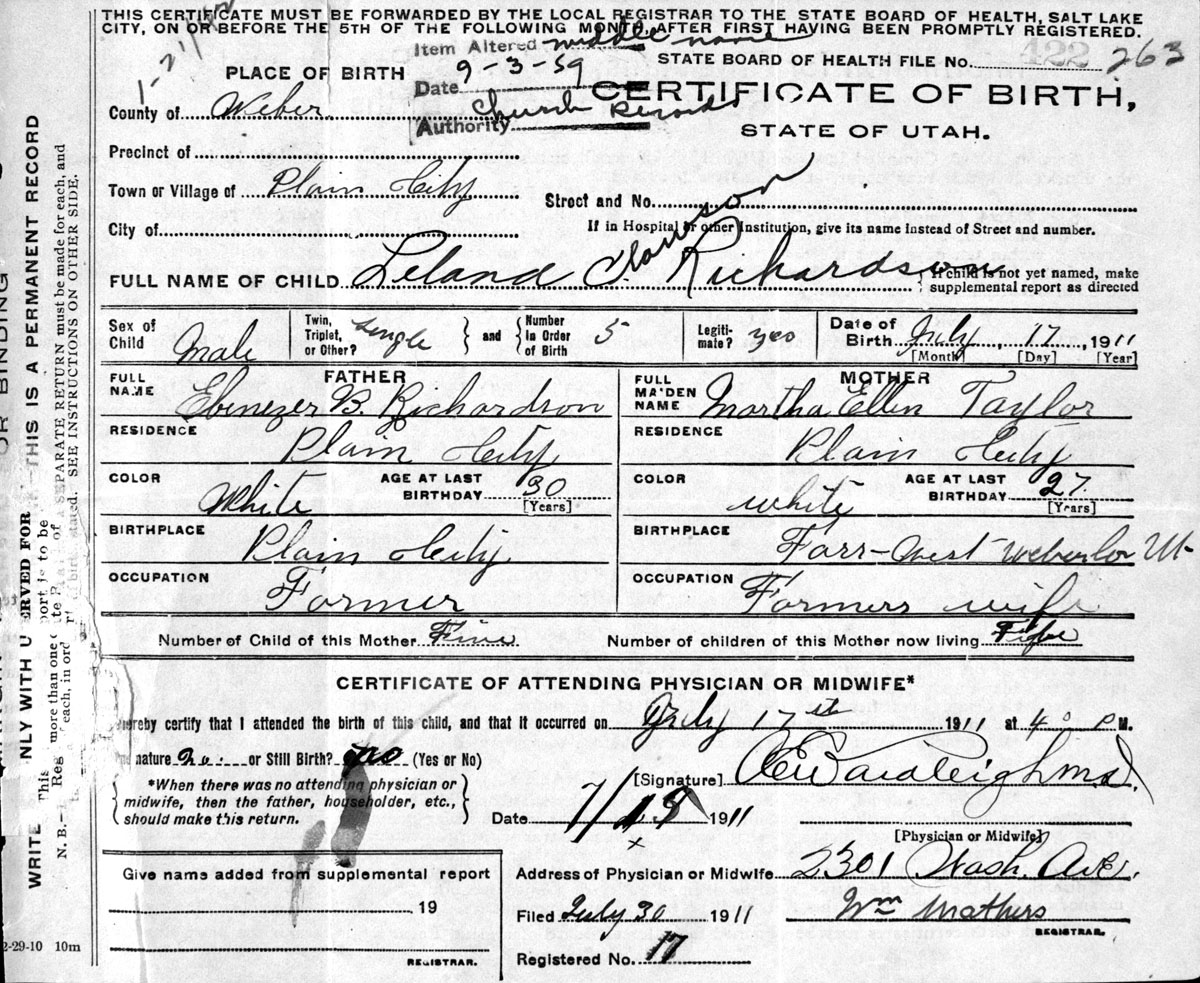 THIS CERTIFICATE MUST BE FORWARDED BY THE LOCAL REGISTRAR TO THE STATE BOARD OF HEALTH, SALT LAKE
CITY, ON OR BEFORE THE 5TH OF THE FOLLOWING MONTH, AFTER FIRST HAVING BEEN PROMPTLY REGISTERED.
Item Altered middle name
Date 9-3-59
Authority Church Record
STATE BOARD OF HEALTH FILE No. 422 263
PLACE OF BIRTH
CERTIFICATE OF BIRTH,
STATE OF UTAH.
County of Weber
Precinct of
Town or Village of Plain City
Street and No.
City of
If in Hospital or other Institution, give its name instead of Street and number.
FULL NAME OF CHILD Leland C. Richardson
If child is not yet named, make
supplemental report as directed
Sex of Child Male
Twin, Triplet, or Other? single
and
Number in Order of Birth 5
Legiti-mate? yes
Date of Birth July 17, 1911
[Month] [Day] [Year]
FATHER
FULL NAME Ebenezer B. Richardson
RESIDENCE
Plain City
COLOR White
AGE AT LAST BIRTHDAY 30
[Years]
BIRTHPLACE
Plain City
OCCUPATION
Farmer
MOTHER
FULL MAIDEN NAME Martha Ellen Taylor
RESIDENCE
Plain City
COLOR white
AGE AT LAST BIRTHDAY 27
[Years]
BIRTHPLACE
Farr-West Weber Co Ut
OCCUPATION
Farmers wife
Number of Child of this Mother Five
Number of children of this Mother now living Five
CERTIFICATE OF ATTENDING PHYSICIAN OR MIDWIFE*
hereby certify that I attended the birth of this child, and that it occurred on July 17th 1911 at 4 P M.
nature no. or Still Birth? no (Yes or No)
*When there was no attending physician or
midwife, then the father, householder, etc.,
should make this return.
[Signature]
Date 7/19 1911
[Physician or Midwife]
Give name added from supplemental report
19
REGISTRAR.
Address of Physician or Midwife 2301 Wash. Ave.
Filed July 30 1911
Wm Mathers
REGISTRAR.
Registered No. 17
2-29-10 10m
WRITE
NLY WITH U
ERVED FOR
THIS IS A PERMANENT RECORD
OR BINDING
This
port is to be
N. B.
more than one
SEPARATE RETURN must be made for each, and
each, in ord
stated. SEE INSTRUCTIONS ON OTHER SIDE.